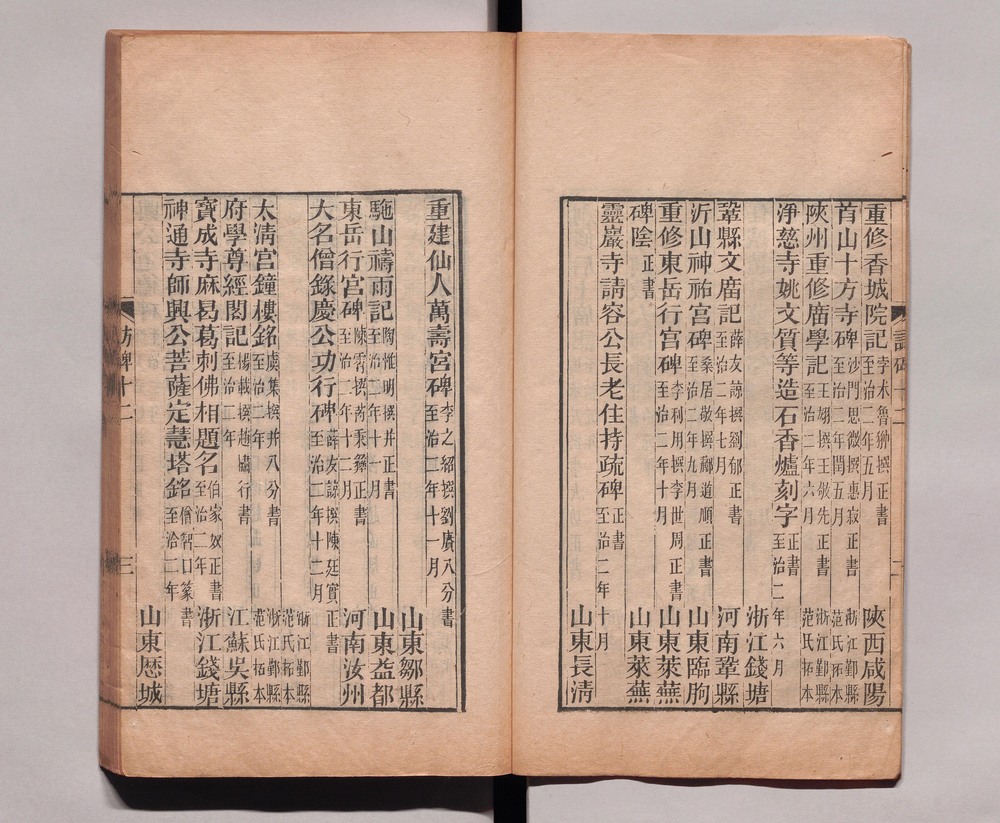 重修香城院記 孛术魯翀撰正書 至治二年五月 陝西咸陽
首山十方寺碑 沙門思微撰惠寂正書 至治二年閏五月 浙江鄞縣范氏拓本
陝州重修廟學記 王翊撰王敬先正書 至治二年六月 浙江鄞縣范氏拓本
淨慈寺姚文質等造石香爐刻字 正書 至治二年六月 浙江錢塘
鞏縣文廟記 薛友諒撰劉郁正書 至治二年七月 河南鞏縣
沂山神祐宮碑 桑居敬撰酈道順正書 至治二年九月 山東臨朐
重修東岳行宮碑 李利用撰李世周正書 至治二年十月 山東萊蕪
碑陰 正書 山東萊蕪
靈巖寺請容公長老住持疏碑 正書 至治二年十月 山東長淸
重建仙人萬壽宮碑 李之紹撰劉賡八分書 至治二年十一月 山東鄒縣
駞山禱雨記 陶惟明撰并正書 至治二年十一月 山東益都
東岳行宮碑 陳霄撰芮秉彝正書 至治二年十二月 河南汝州
大名僧錄慶公功行碑 薛友諒撰陳廷實正書 至治二年十二月 浙江鄞縣范氏拓本
太淸宮鐘樓銘 虞集撰并八分書 至治二年 浙江鄞縣范氏拓本
府學尊經閣記 楊載撰趙 行書 至治二年 江蘇吳縣
寶成寺麻曷葛刺佛相題名 伯家奴正書 至治二年 浙江錢塘
神通寺師興公菩薩定慧塔銘 僧智口篆書 至治二年 山東歷城
訪碑十二
三